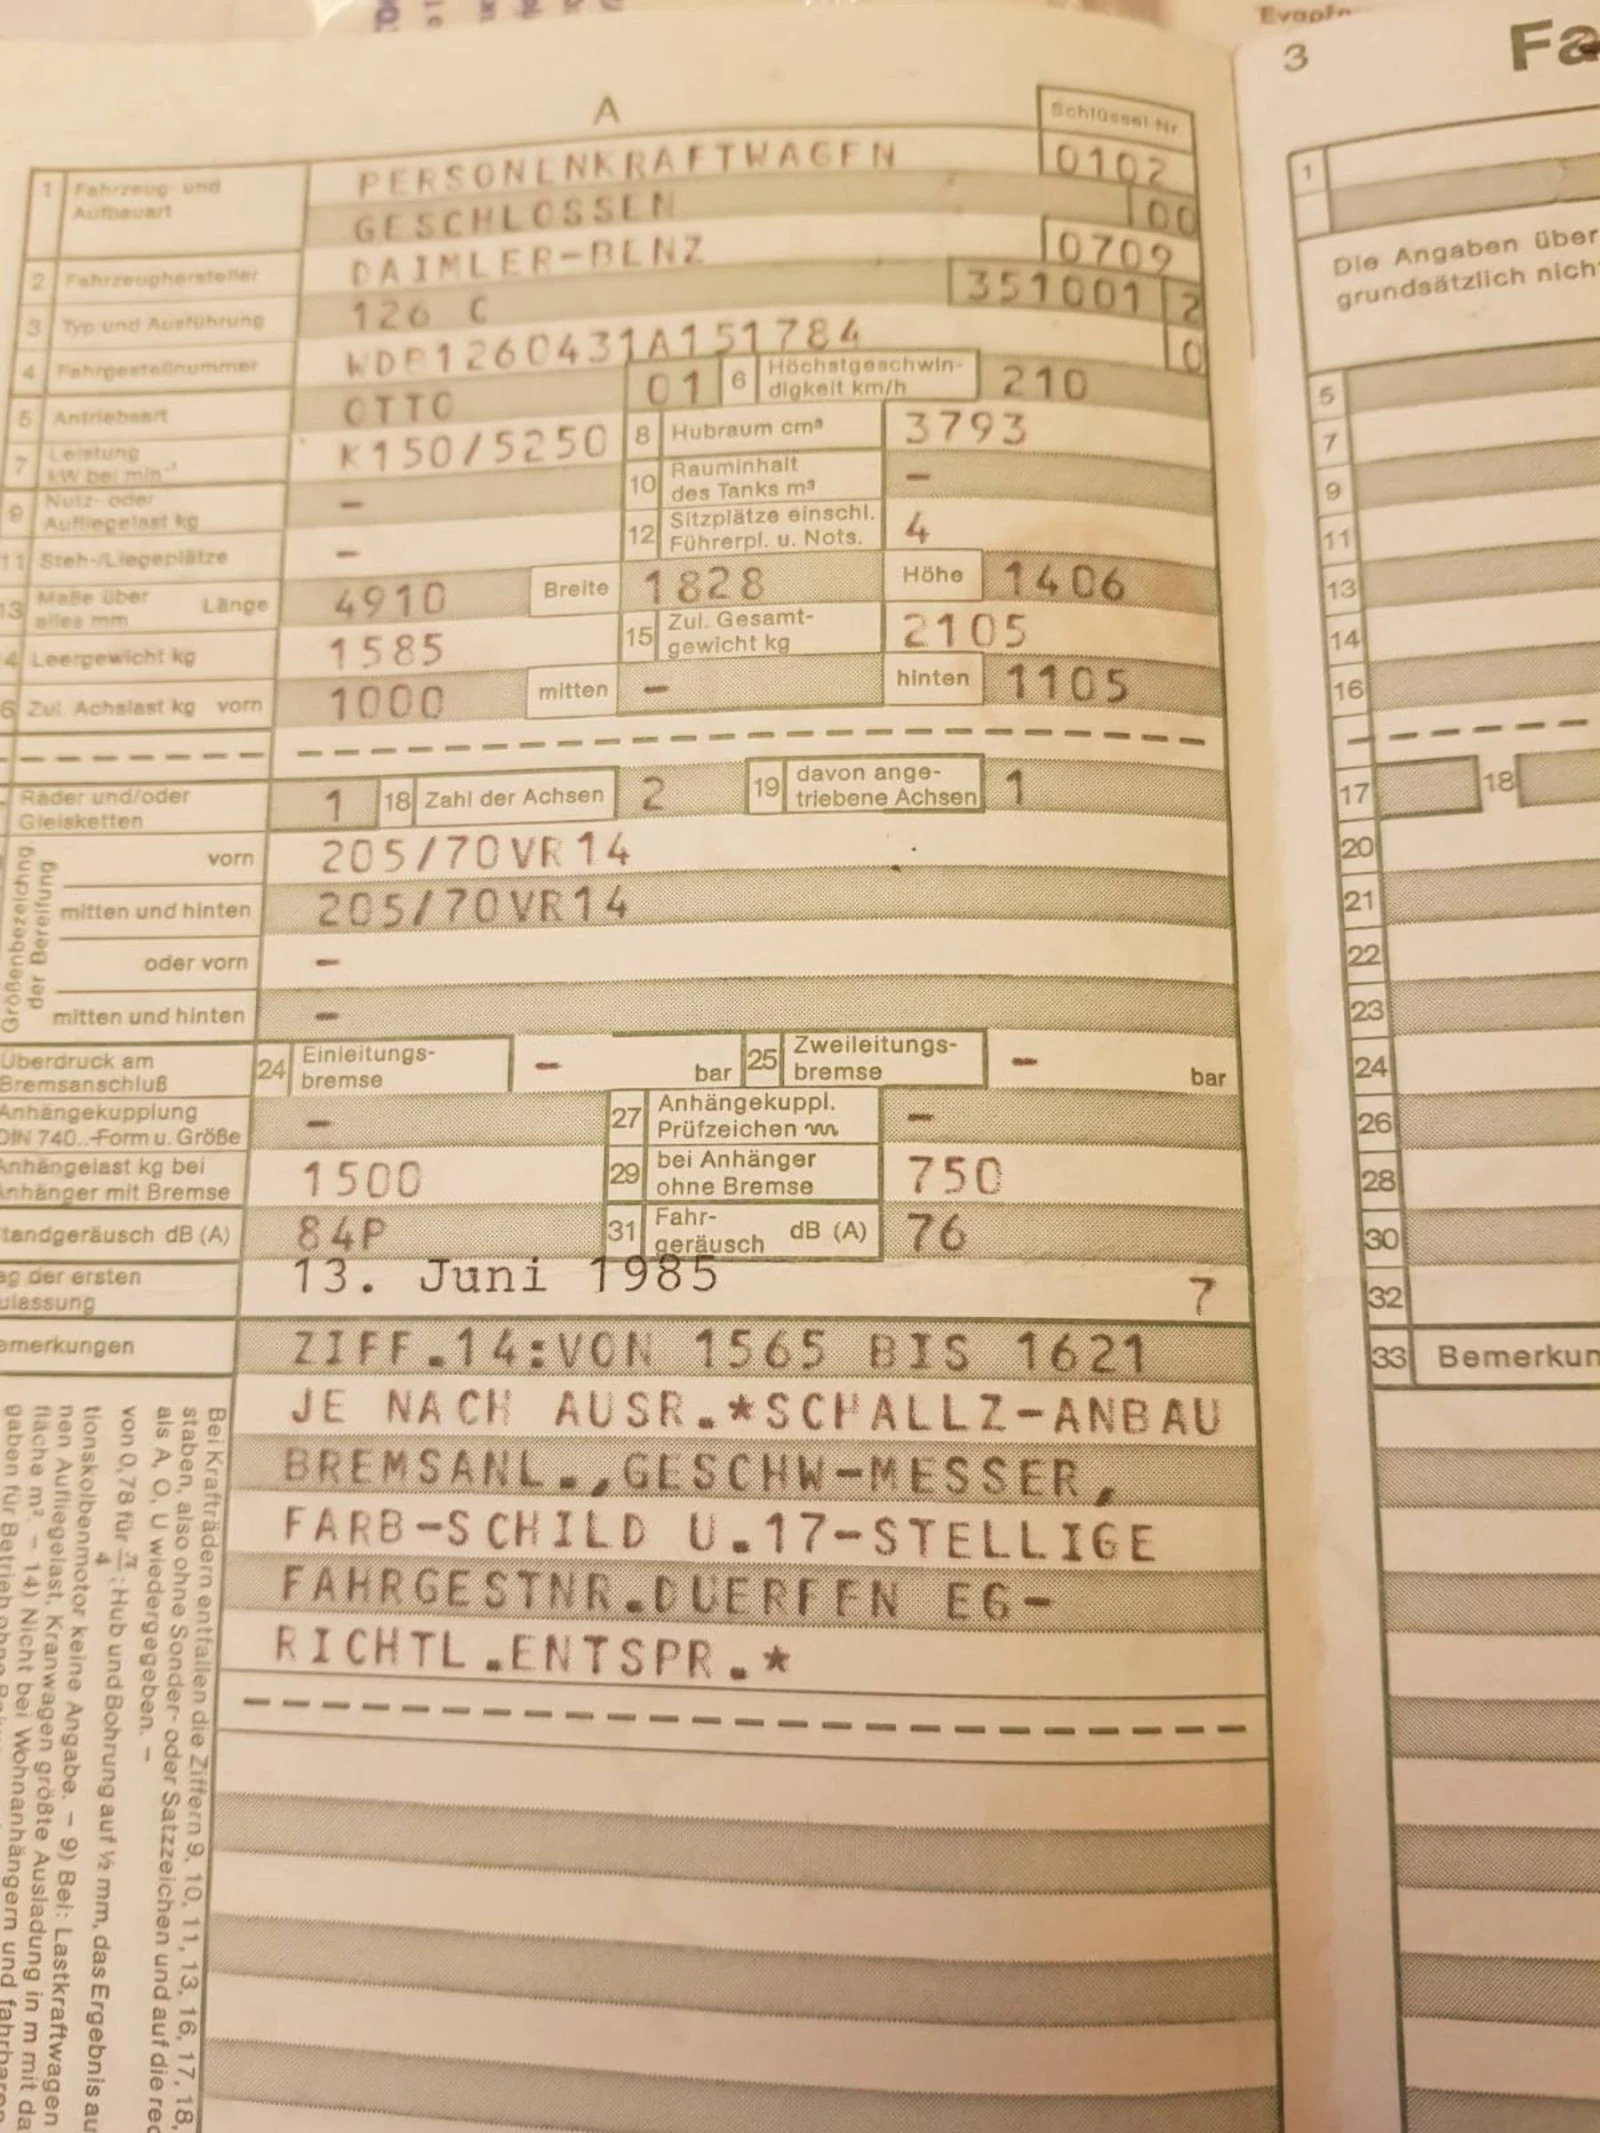 A
Schlüssel-Nr.
1 Fahrzeug- und Aufbauart PERSONENKRAFTWAGEN 0102
GESCHLOSSEN 00
2 Fahrzeughersteller DAIMLER-BENZ 0709
3 Typ und Ausführung 126 C 351001 2
4 Fahrgestellnummer WDB1260431A151784 0
5 Antriebsart OTTO 01 6 Höchstgeschwindigkeit km/h 210
7 Leistung kW bei min⁻¹ K150/5250 8 Hubraum cm³ 3793
9 Nutz- oder Aufliegelast kg – 10 Rauminhalt des Tanks m³ –
11 Steh-/Liegeplätze – 12 Sitzplätze einschl. Führerpl. u. Nots. 4
13 Maße über alles mm Länge 4910 Breite 1828 Höhe 1406
4 Leergewicht kg 1585 15 Zul. Gesamt-gewicht kg 2105
6 Zul. Achslast kg vorn 1000 mitten – hinten 1105
Räder und/oder Gleisketten 1 18 Zahl der Achsen 2 19 davon ange-triebene Achsen 1
Größenbezeichnung der Bereifung
vorn 205/70VR14
mitten und hinten 205/70VR14
oder vorn –
mitten und hinten –
Überdruck am Bremsanschluß 24 Einleitungs-bremse – bar 25 Zweileitungs-bremse – bar
Anhängekupplung DIN 740..-Form u. Größe – 27 Anhängekuppl. Prüfzeichen –
Anhängelast kg bei Anhänger mit Bremse 1500 29 bei Anhänger ohne Bremse 750
tandgeräusch dB (A) 84P 31 Fahr-geräusch dB (A) 76
ag der ersten ulassung 13. Juni 1985 7
emerkungen ZIFF.14:VON 1565 BIS 1621
JE NACH AUSR.*SCHALLZ-ANBAU
BREMSANL.,GESCHW-MESSER,
FARB-SCHILD U.17-STELLIGE
FAHRGESTNR.DUERFEN EG-
RICHTL.ENTSPR.*
Bei Krafträdern entfallen die Ziffern 9, 10, 11, 13, 16, 17, 18,
staben, also ohne Sonder- oder Satzzeichen und auf die rec
als A, O, U wiedergegeben. –
von 0,78 für π/4; Hub und Bohrung auf ½ mm, das Ergebnis au
tionskolbenmotor keine Angabe. – 9) Bei: Lastkraftwagen
nen Aufliegelast, Kranwagen größte Ausladung in m mit da
fläche m². – 14) Nicht bei Wohnanhängern und fahrbaren
gaben für Betrieb ohne
3
Fa
1
Die Angaben über
grundsätzlich nich
5
7
9
11
13
14
16
17 18
20
21
22
23
24
26
28
30
32
33 Bemerkun